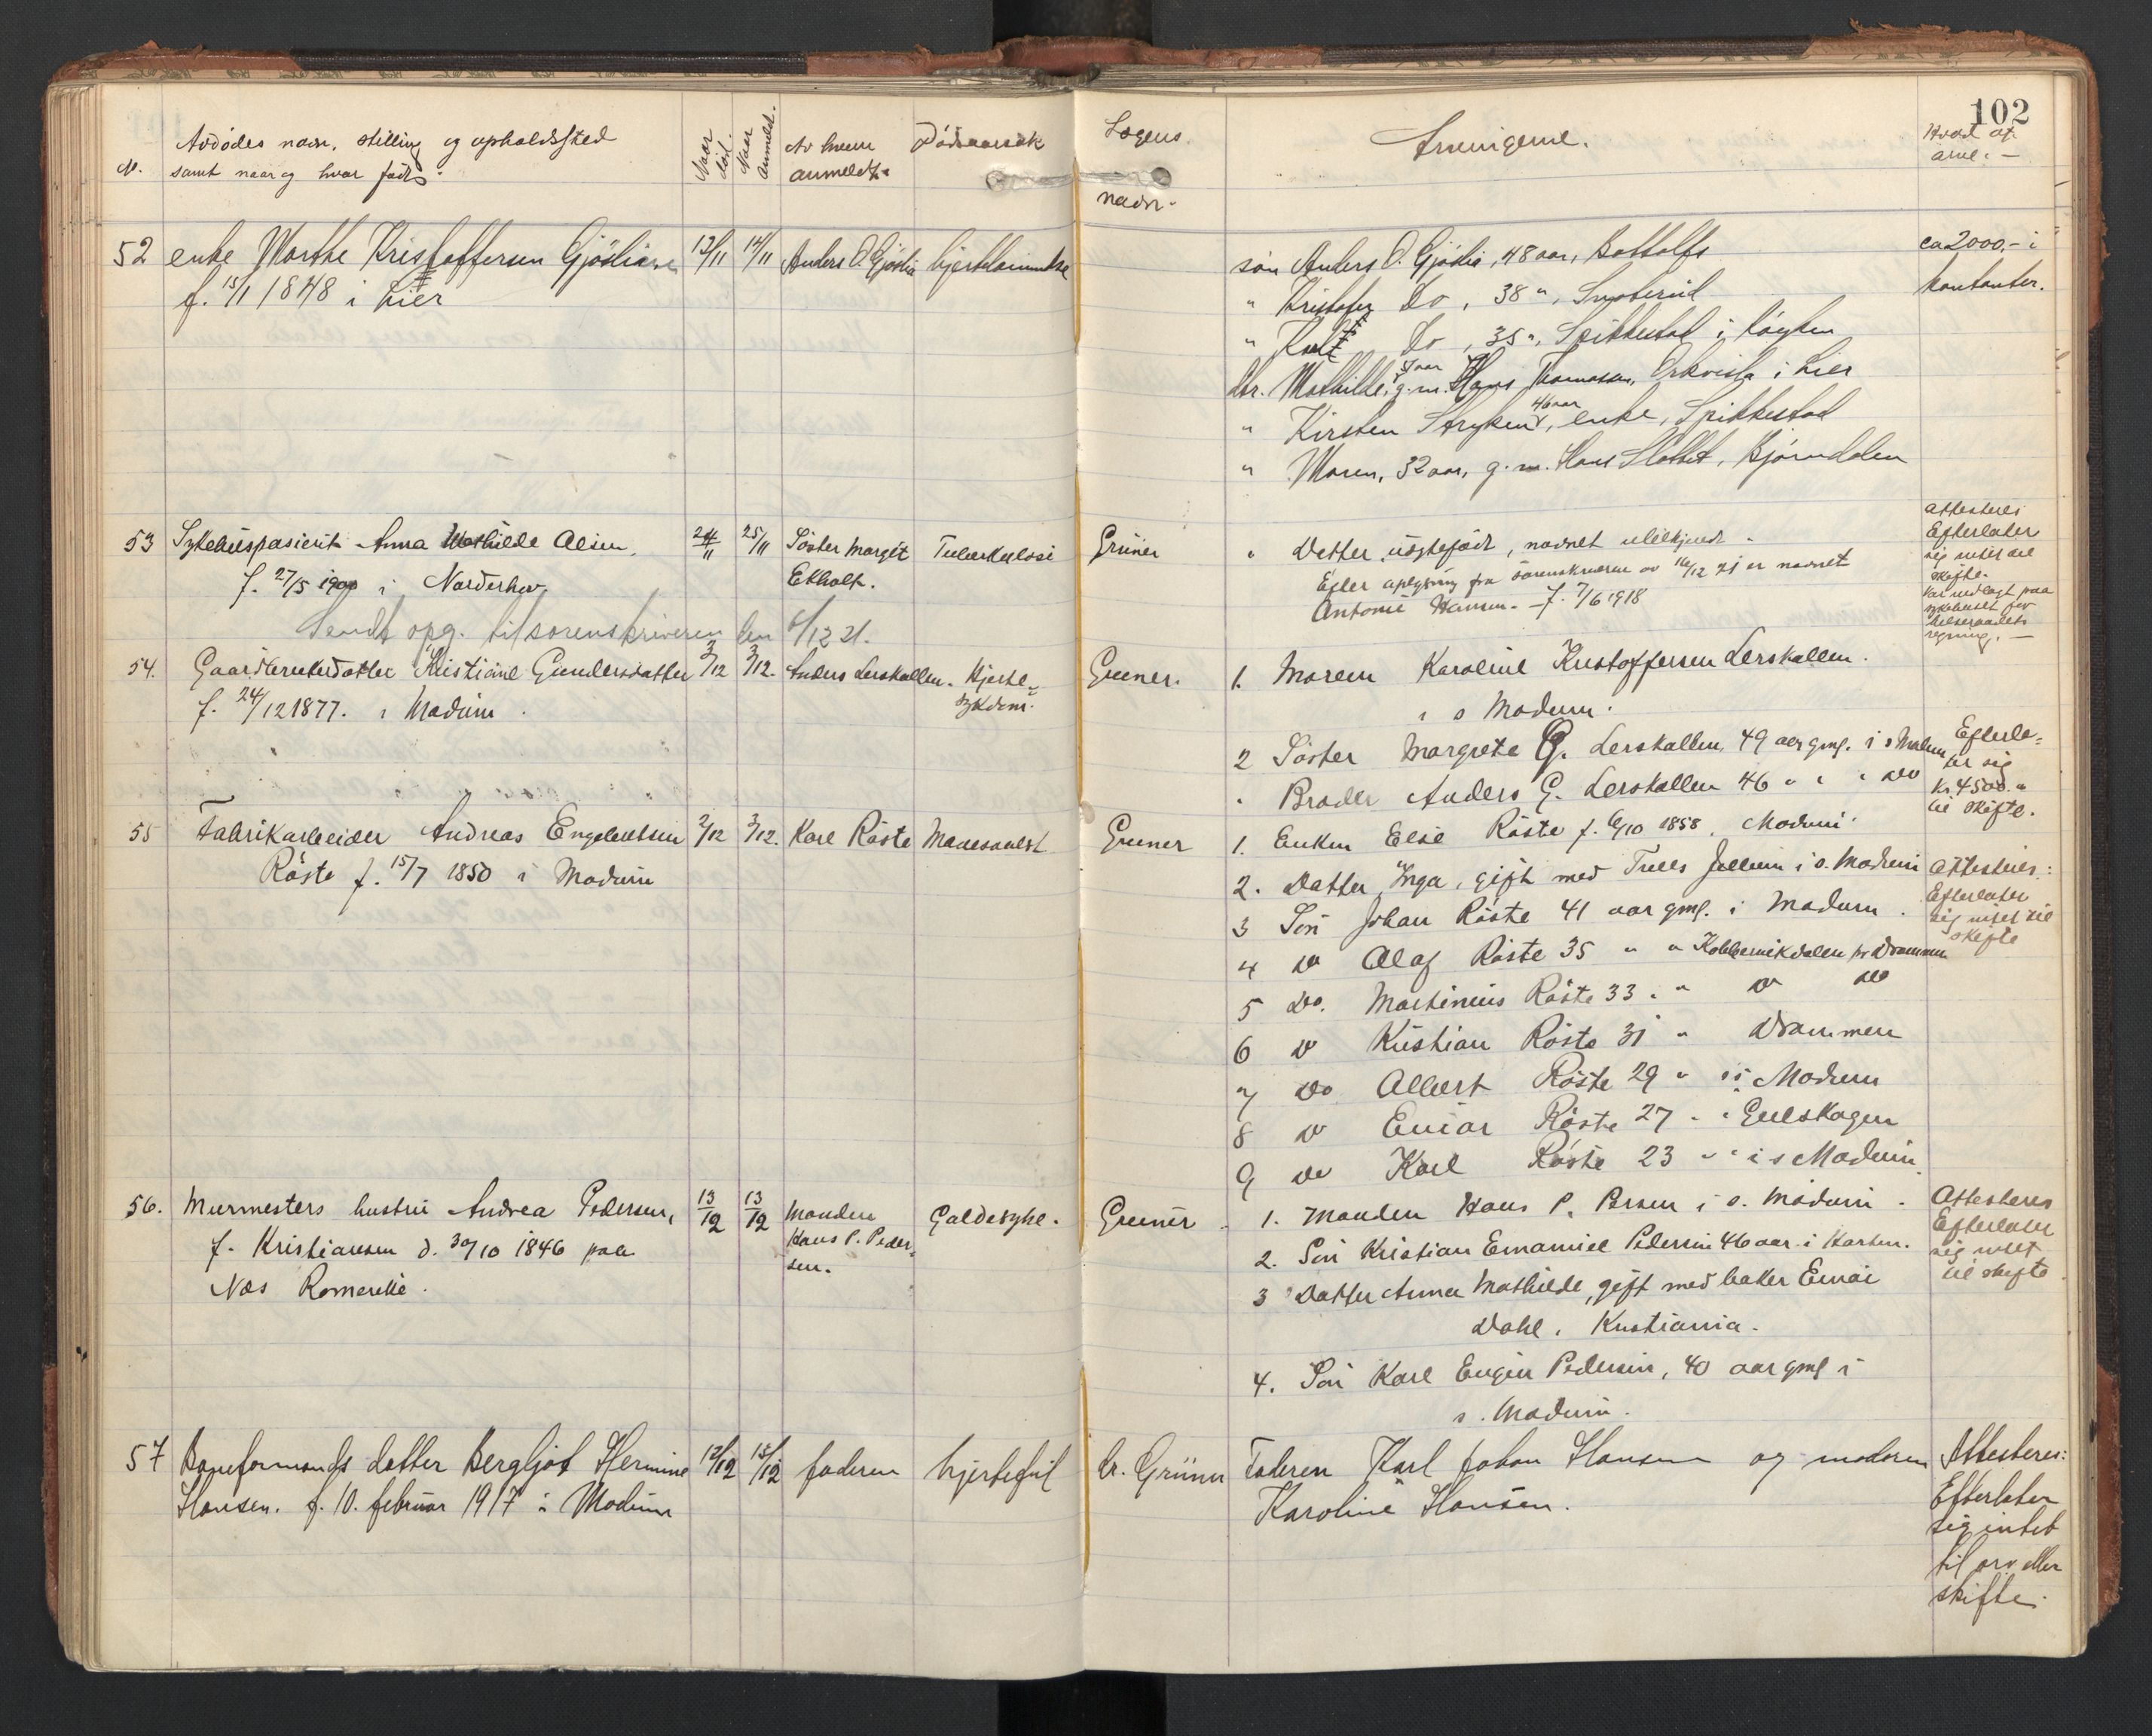 102
No.
Avdødes navn, stilling og opholdssted
samt naar og hvor født.
Naar død.
Naar anmeldt.
Av hvem
anmeldt.
Dødsaarsak
Lægens
navn.
Arvingerne.
Hvad af
arve. —
52 enke Marthe Kristoffersen Gjøslien 12/11 14/11 Anders O. Gjøslia hjertelammelse
f. 15/11 1848 i Lier
søn Anders O. Gjøslia, 48 aar,
" Kristofer Do, 38 "
" Karl Do, 35 ", Spikkestad i Røyken
dtr. Mathilde, g.m. Hans Thomassen, i Lier
" Kirsten Stryken, 46 aar, enke, Spikkestad
" Maren, 32 aar, g.m. Hans Slottet, Bjørndalen
ca 2000,- i
kontanter.
53 Sykehuspasient Anna Mathilde Olsen 24/11 25/11 Søster Margit Tuberkulose Grüner
Ekholt.
f. 27/5 1900 i Norderhov.
Sendt opg. til sorenskriveren den 6/12 21.
" Datter uægtefødt, navnet ubekjendt.
Efter oplysning fra sorenskriveren av 16/12 21 er navnet
Antonie Hansen. f. 7/6 1918
Attesteres
Efterlater
sig intet til
skifte.
Var indlagt paa
sykehuset for
helseraadets
regning. —
54. Gaardbrukerdatter Kristiane Gundersdatter 2/12 3/12. Anders Lerskallen. Hjerte-
sykdom. Gruner.
f. 24/12 1877. i Modum.
1. Moren Karoline Kristoffersen Lerskallen.
i s Modum.
2 Søster Margrete G. Lerskallen, 49 aar gml. i s Modum
" Broder Anders G. Lerskallen 46 " " " Do
Efterla-
ter sig
Kr. 4500.-
til skifte.
55 Fabrikarbeider Andreas Engebretsen 2/12 3/12. Karl Røste Mavesaalst Gruner
Røste f. 15/7 1850 i Modum
1. Enken Elise Røste f. 6/10 1858. Modum.
2. Datter Inga, gift med Truls Jellum i s. Modum
3 Søn Johan Røste 41 aar gml. i Modum.
4 Do Olaf Røste 35 " " Kobbervikdalen pr Drammen
5 Do. Martinius Røste 33 " " Do Do
6 Do Kristian Røste 31 " Drammen
7 Do Albert Røste 29 " i s Modum
8 Do Einar Røste 27 " i Gulskogen
9 Do Karl Røste 23 " " i s Modum.
Attesteres:
Efterlater
sig intet til
skifte
56. Murmesters hustru Andrea Pedersen, 13/12 13/12 Manden Galdesyke. Gruner
Hans P. Peder-
sen.
f. Kristiansen d. 30/10 1846 paa
Nes Romerike.
1. Manden Hans P. Persen i s. Modum.
2. Søn Kristian Emanuel Pedersen 46 aar i Horten.
3 Datter Anna Mathilde, gift med baker Einar
Dahl, Kristiania.
4. Søn Karl Eugen Pedersen, 40 aar gml i
s. Modum.
Attesteres
Efterlater
sig intet
til skifte.
57 Baneformands datter Bergljot Hermine 12/12 15/12 faderen hjertefeil dr. Grüner
Hansen. f. 10. februar 1917 i Modum
Faderen Karl Johan Hansen og moderen
Karoline Hansen.
Attesteres:
Efterlater
sig intet
til arv eller
skifte.